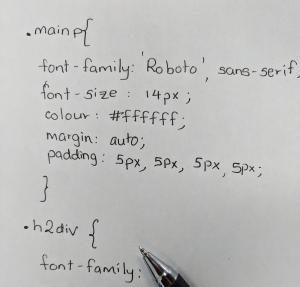 .mainp{
font-family: 'Roboto', sans-serif;
font-size : 14px ;
colour : #ffffff;
margin: auto;
padding: 5px, 5px, 5px, 5px;
}
.h2div {
font-family: